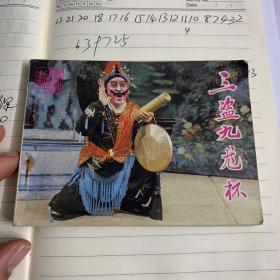 12 21 20 18 17 16 15 14 13 12 11 10 8 7 4 3 2
4
639725
三盗九龙杯